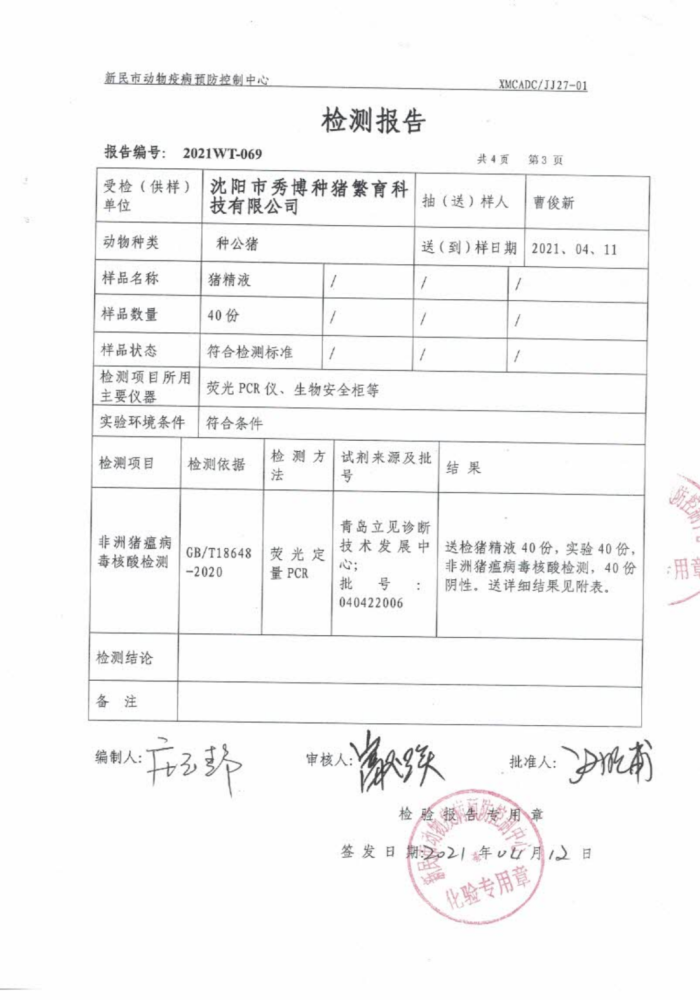 新民市动物疫病预防控制中心 XMCADC/JJ27-01
检测报告
报告编号: 2021WT-069 共4页 第3页
受检（供样）
单位
沈阳市秀博种猪繁育科
技有限公司
抽（送）样人
曹俊新
动物种类 种公猪 送（到）样日期 2021、04、11
样品名称 猪精液 / / /
样品数量 40份 / / /
样品状态 符合检测标准 / / /
检测项目所用
主要仪器
荧光PCR仪、生物安全柜等
实验环境条件 符合条件
检测项目
检测依据
检测方
法
试剂来源及批
号
结果
非洲猪瘟病
毒核酸检测
GB/T18648
-2020
荧光定
量PCR
青岛立见诊断
技术发展中
心;
批号:
040422006
送检猪精液40份，实验40份，
非洲猪瘟病毒核酸检测，40份
阴性。送详细结果见附表。
检测结论
备 注
编制人: 审核人: 批准人:
检验报告专用章
签发日期:2021年04月12日
新民市动物疫病预防控制中心
化验专用章
用章